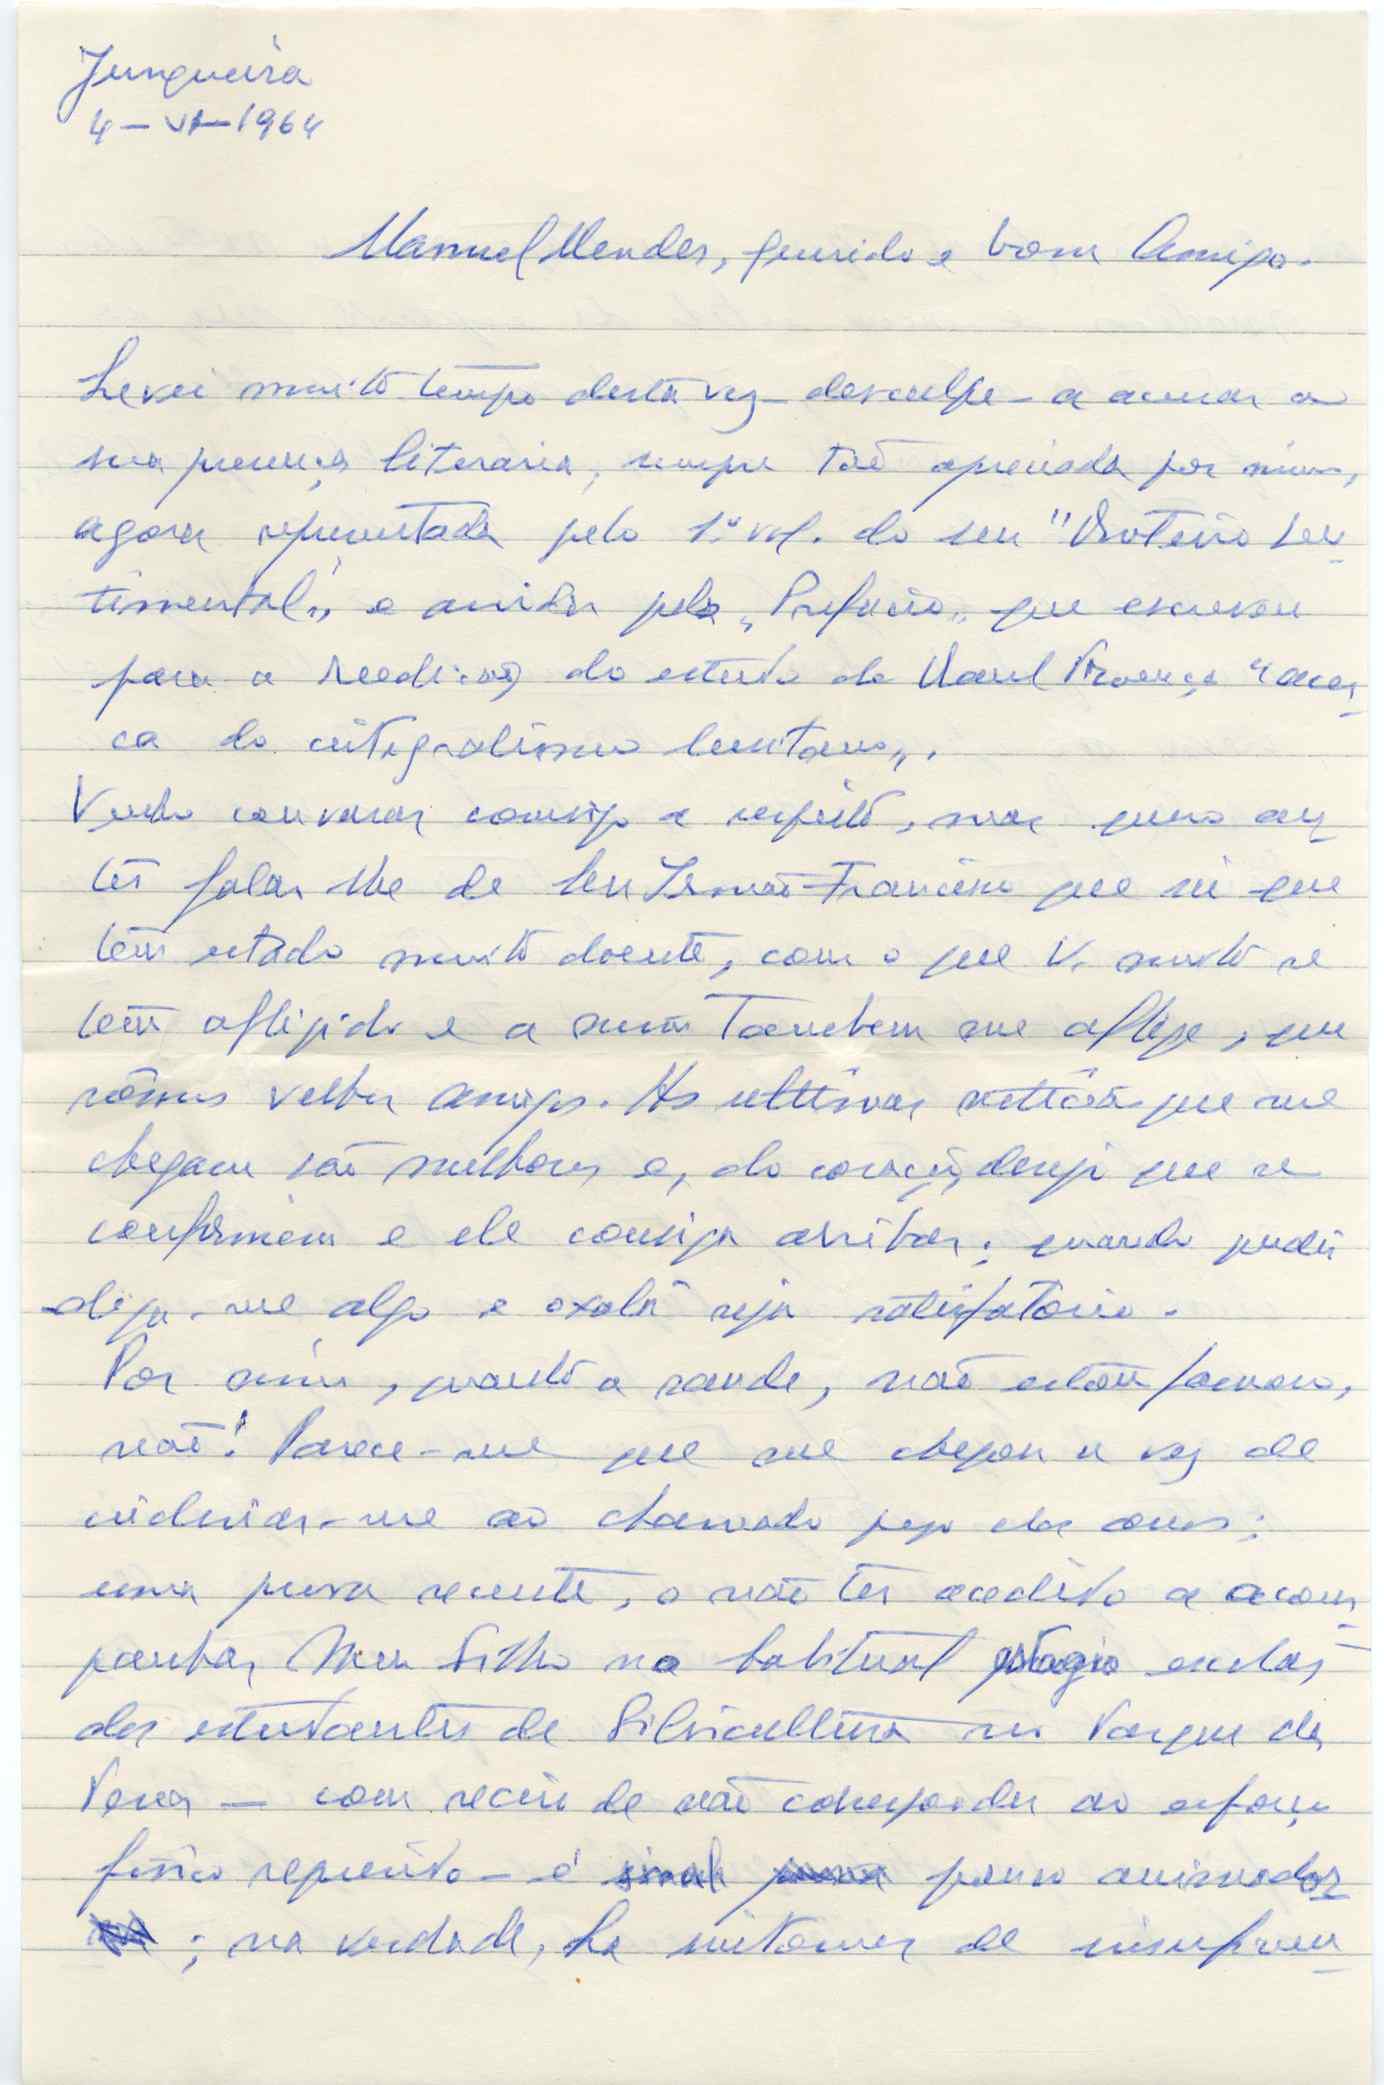 Junqueira
4-VI-1964
Manuel Mendes, querido e bom Amigo.
Levei muito tempo desta vez - desculpe - a acusar a
sua presença literaria, sempre tão apreciada por mim,
agora representada pelo 1.º vol. do seu "Roteiro Sen
timental", e ainda pelo "Prefacio" que escreveu
para a reedição do estudo do Raul Proença "acer
ca do integralismo lusitano".
Venho conversar consigo a respeito, mas quero an
tes falar-lhe de seu Irmão Francisco que sei que
tem estado muito doente, com o que V. muito se
tem afligido e a mim tambem me aflige, que
somos velhos amigos. As ultimas noticias que me
chegam são melhores e, do coração, desejo que se
confirmem e ele consiga arribar; quando puder
diga-me algo e oxalá seja satisfatorio.
Por mim, quanto a saude, não estou famoso,
não! Parece-me que me chegou a vez de
evidenciar-me ao chamado peso dos anos;
uma prova recente, o não ter acedido a acom
panhar Meu Filho no habitual estagio escolar
dos estudantes de Silvicultura no Parque da
Pena - com receio de não corresponder ao esforço
fisico requerido - é sinal pouco animador
; na verdade, ha sintomas de insuficien